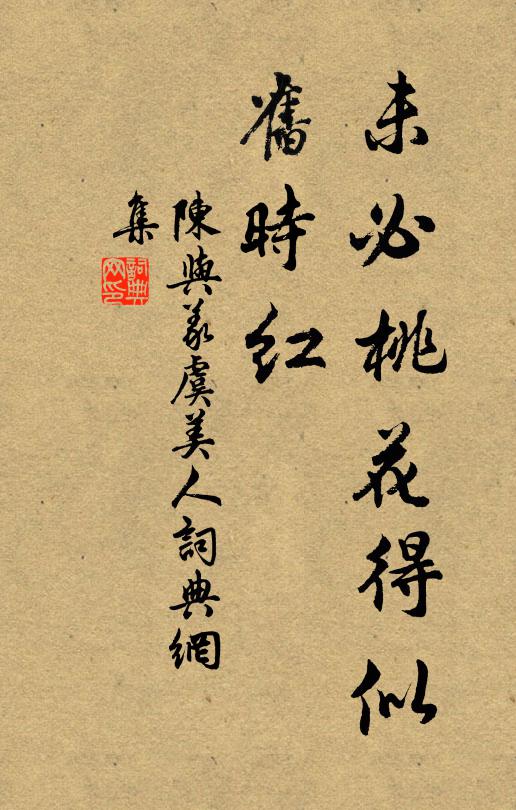 未必桃花得似
舊時紅
陳與義虞美人詞典網
集
詞典網印